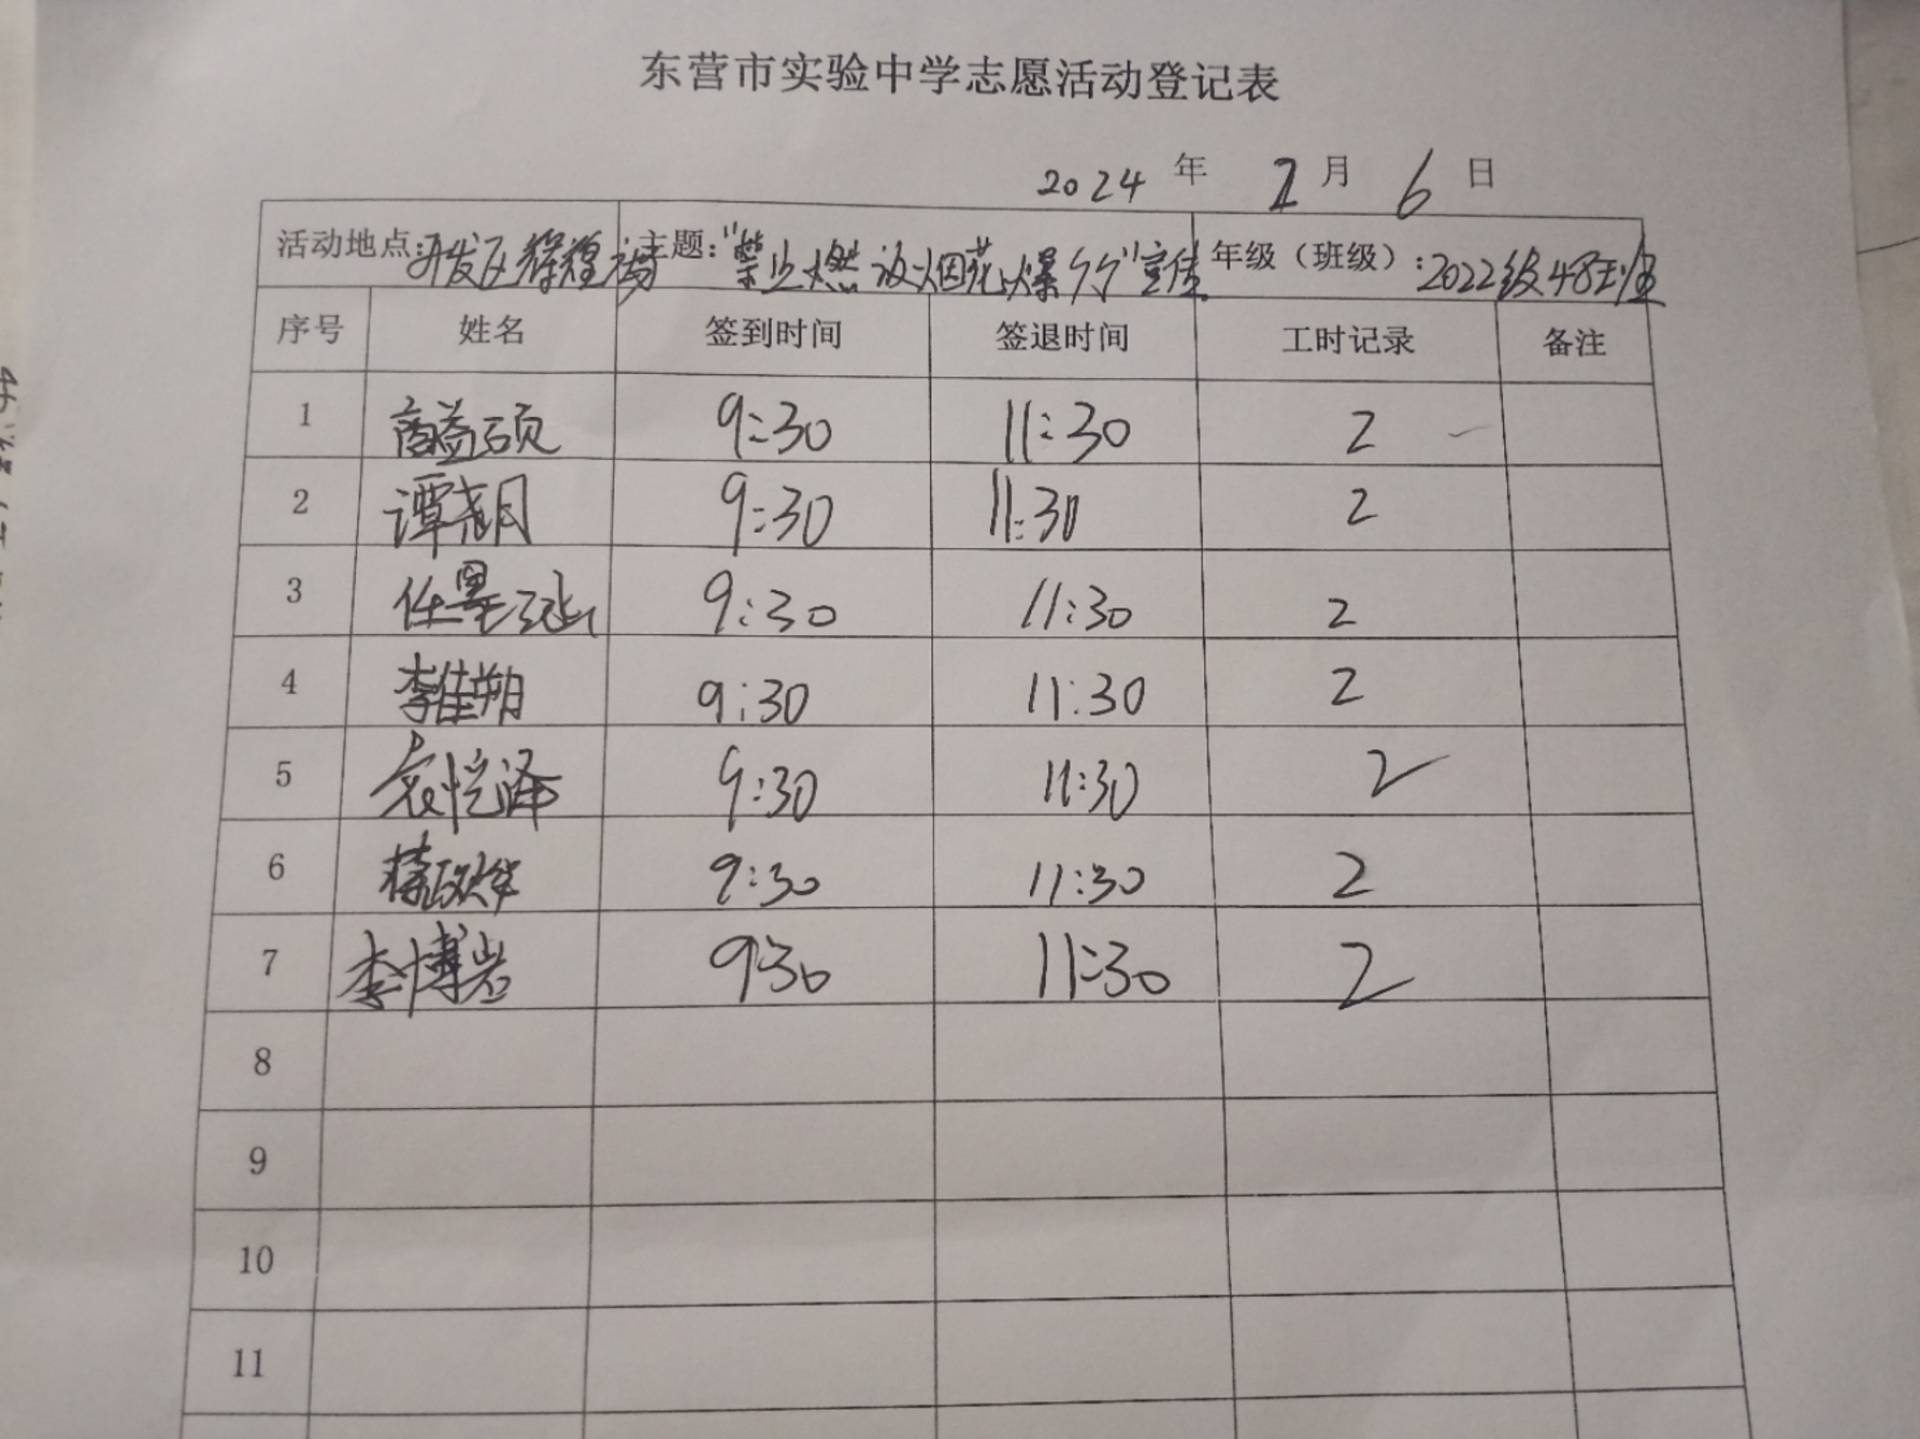 东营市实验中学志愿活动登记表
2024 年 2 月 6 日
活动地点:开发区辉煌 主题:"禁止燃放烟花爆竹"宣传 年级（班级）:2022级48班
序号 姓名 签到时间 签退时间 工时记录 备注
1 商益硕 9:30 11:30 2
2 谭尧月 9:30 11:30 2
3 任墨 9:30 11:30 2
4 李佳朔 9:30 11:30 2
5 袁恺泽 9:30 11:30 2
6 9:30 11:30 2
7 李博岩 9:30 11:30 2
8
9
10
11